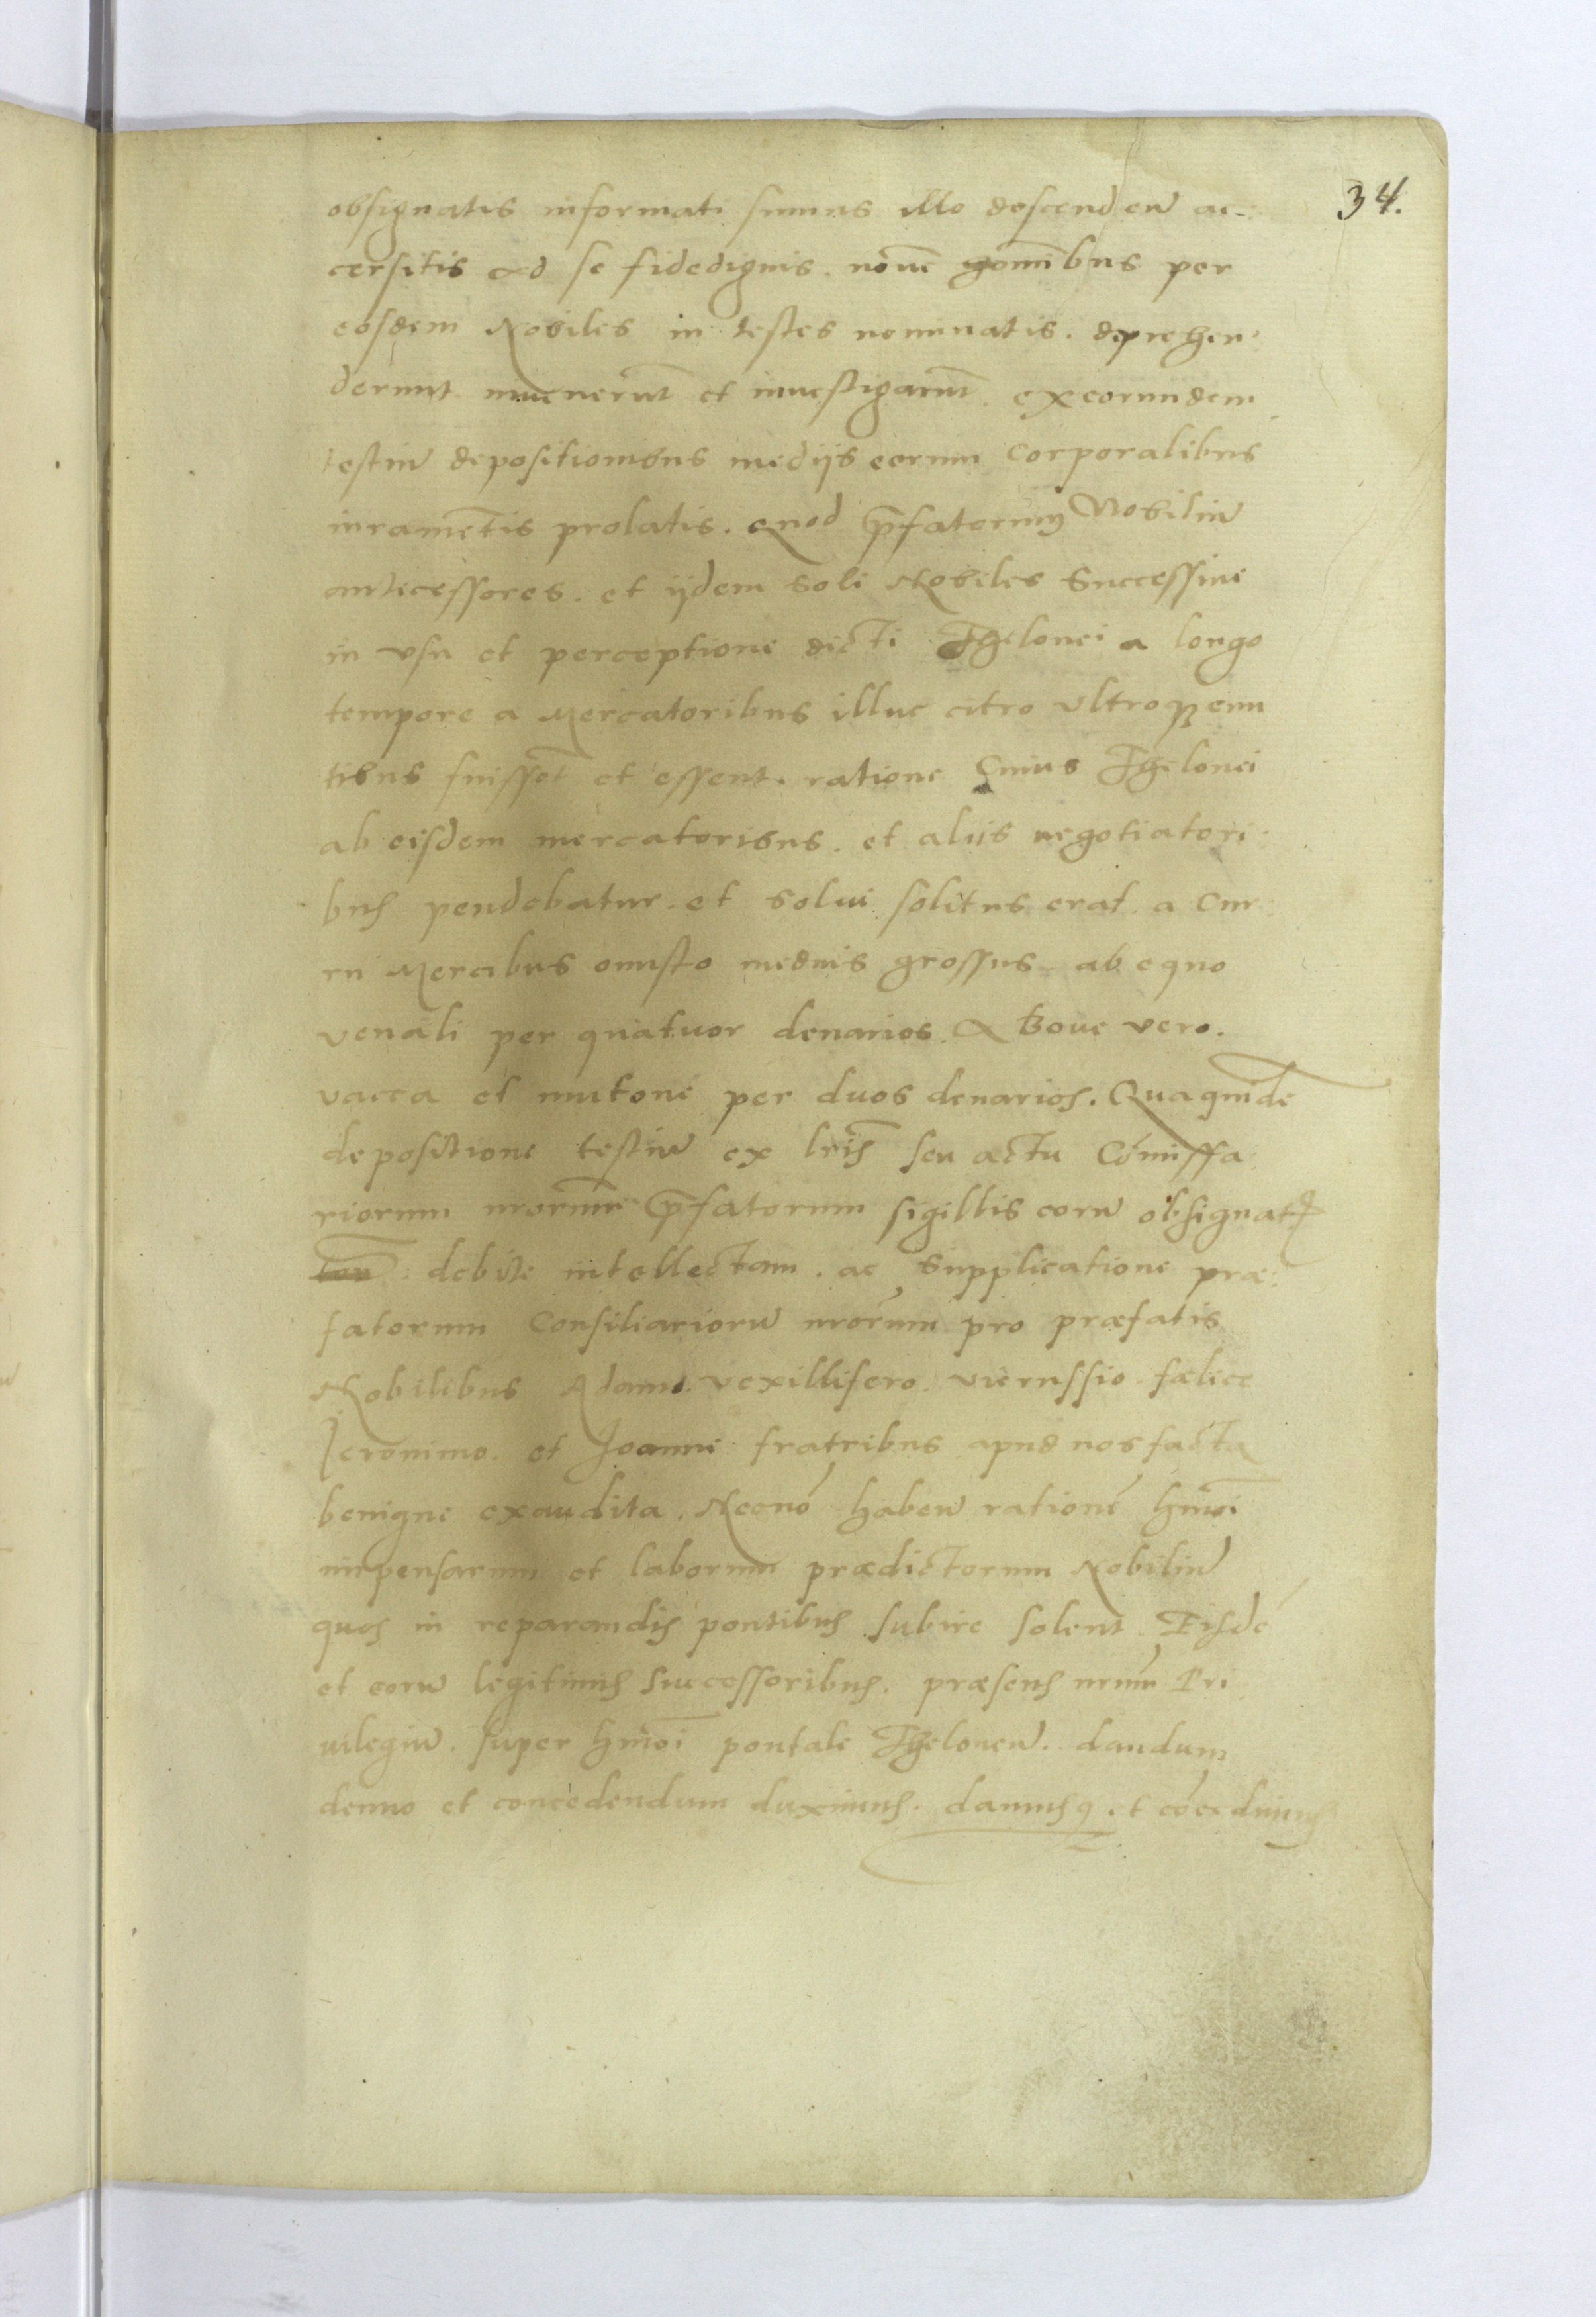 34.
obsignatis informati sumus illo descendeñ ac-
cersitis ad se fidedignis. novē hominibus per
eosdem Nobiles in testes nominatis. deprehen-
derunt invenerūt et investigarūt. ex eorundem
testiū depositionibus medijs eorum corporalibus
iuramētis prolatis. quod p̄fatorum Nobiliū
antecessores. et ijdem soli Nobiles Successive
in usu et perceptione dicti Thelonei a longo
tempore a Mercatoribus illuc citro ultroqȝ eun
tibus fuissēt et essent. ratione Cuius Thelonei
ab eisdem mercatoribus. et aliis negotiatori-
bus pendebatur. et solui solitus erat. a Cur
ru Mercibus onusto medius grossus. ab equo
venali per quatuor denarios. A Bove vero.
vacca et mutone per duos denarios. Qua quidē
depositione testiū ex lr̄is seu actu Cōmissa
riorum nr̄orum p̄fatorum sigillis eorū obsignat
debite intellectam. ac Supplicatione præ-
fatorum Consiliariorū nr̄orum pro præfatis
Nobilibus Adamo. vexillifero. fælice
Jeronimo. et Joanne fratribus apud nos facta
benigne exaudita. Necnō habeñ rationē hm̄oi
impensarum et laborum prædictorum Nobiliū
quos in reparandis pontibus subire solent. Eisdē
et eorū legitimis Successoribus. præsens nr̄um Pri
vilegiū. super hm̄oi pontale Theloneū. dandum
denuo et concedendum duximus. damusqȝ et cōcedimus